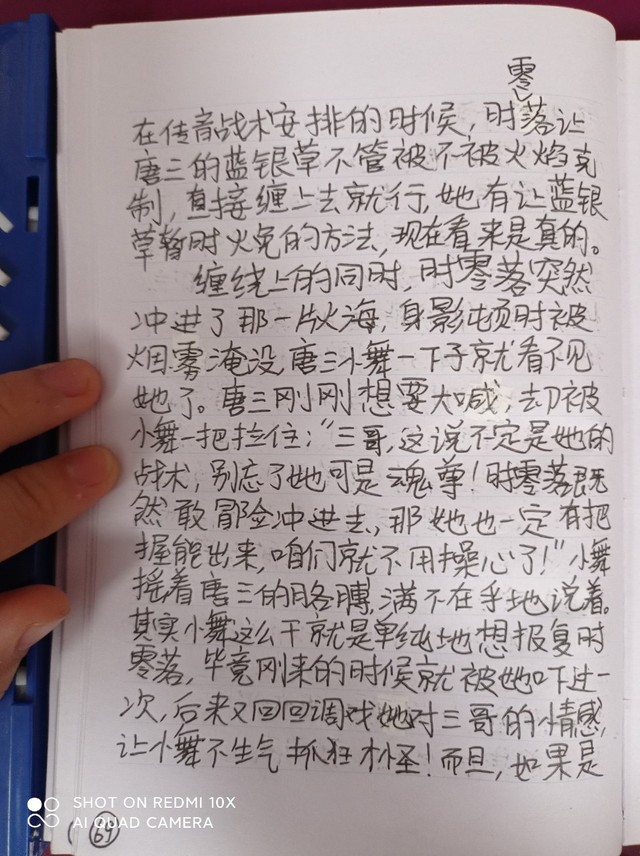 零
在传音战术安排的时候，时落让
唐三的蓝银草不管被不被火焰克
制，直接缠上去就行，她有让蓝银
草暂时火免的方法，现在看来是真的。
缠绕上的同时，时零落突然
冲进了那一片火海，身影顿时被
烟雾淹没，唐三小舞一下子就看不见
她了。唐三刚刚想要大喊，却被
小舞一把拉住；“三哥，这说不定是她的
战术，别忘了她可是魂尊！时零落既
然敢冒险冲进去，那她也一定有把
握能出来，咱们就不用操心了！”小舞
摇着唐三的胳膊，满不在乎地说着。
其实小舞这么干就是单纯地想报复时
零落，毕竟刚来的时候就被她吓过一
次，后来又回回调戏她对三哥的情感，
让小舞不生气抓狂才怪！而且，如果是
64
SHOT ON REDMI 10X
AI QUAD CAMERA